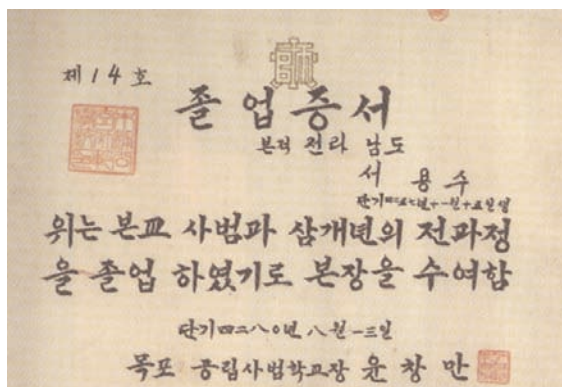 師
제14호
졸업증서
본적 전라 남도
서 용 수
단기四二五七년十一월十五일생
위는 본교 사범과 삼개년의 전과정
을 졸업 하였기로 본장을 수여함
단기四二八〇년 八월一三일
목포 공립사범학교장 윤창만